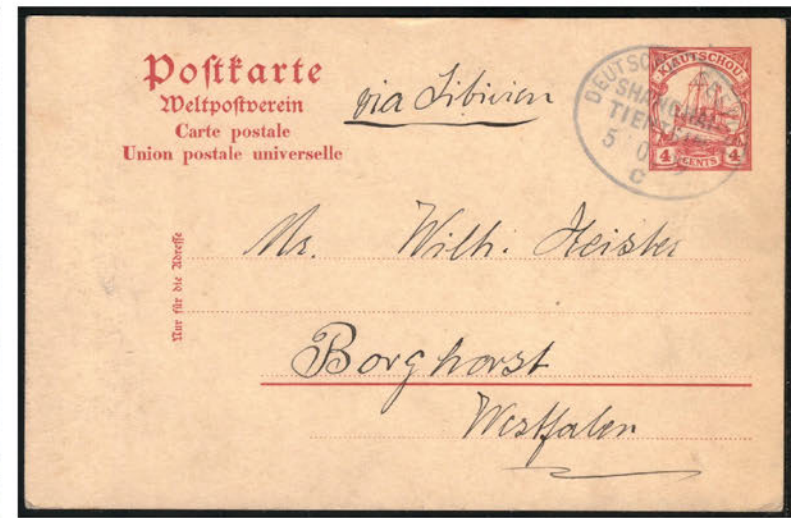 Postkarte
Weltpostverein
Carte postale
Union postale universelle
via Sibirien
KIAUTSCHOU
4 CENTS 4
DEUTSCHE
SHANGHAI
TIENTSIN
5
C
Nur für die Adresse
Mr. Wilh. Heister
Borghorst
Westfalen